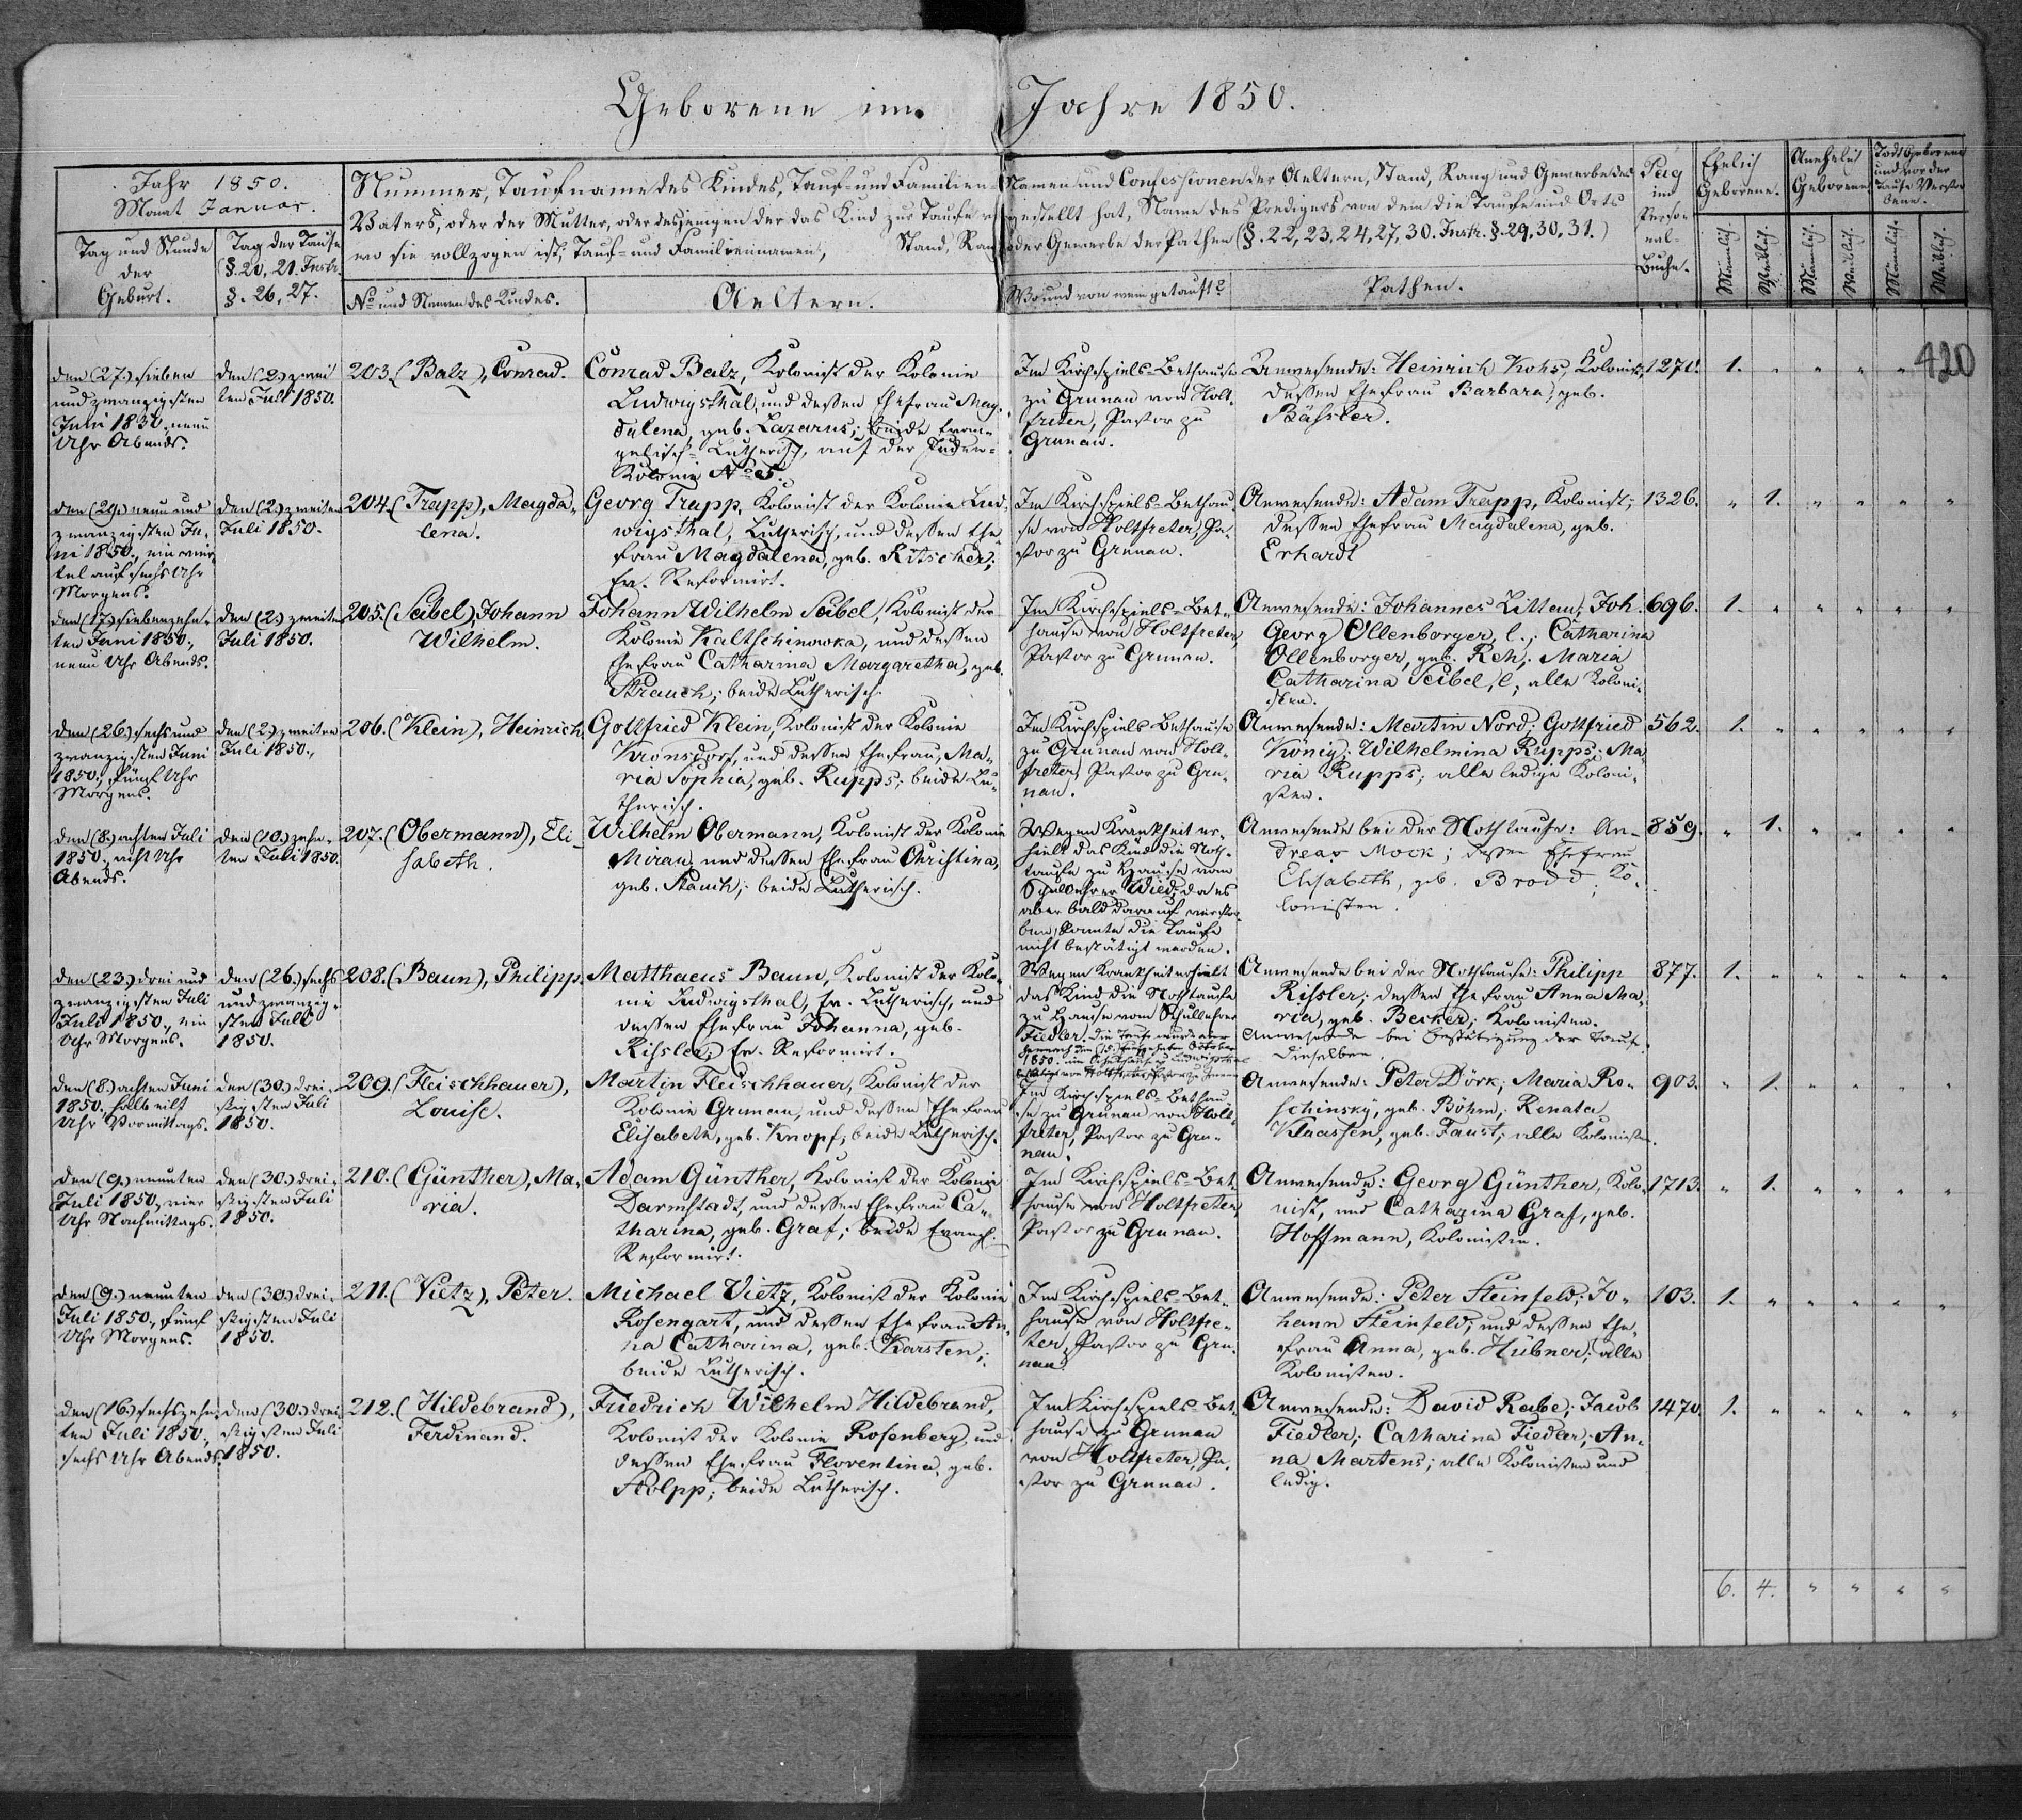 Geborene im Jahre 1850.
420
Jahr 1850.
Monat Januar.
Tag und Stunde
der
Geburt.
Tag der Taufe
§. 20, 21. Instr.
§. 26, 27.
Nummer, Taufname des Kindes, Tauf- und Familien- Namen und Confessionen der Aeltern, Stand, Rang und Gewerbe des
Vaters, oder der Mutter, oder desjenigen der das Kind zur Taufe gestellt hat, Name des Predigers von dem die Taufe und Orts
wo sie vollzogen ist, Tauf- und Familiennamen, Stand, Rang oder Gewerbe der Pathen (§. 22, 23, 24, 27, 30. Instr. §. 29, 30, 31.)
No und Namen des Kindes.
Aeltern.
Wo und von wem getauft?
Pathen.
Pag
im
Perso-
nal-
Buche.
Ehelich
Geborene.
Unehelich
Geborene
Todtgeborene
und vor der
Taufe Verstor
bene.
Männlich.
Weiblich.
Männlich.
Weiblich.
Männlich.
Weiblich.
den (27.) sieben
und zwanzigsten
Juni 1850, neun
Uhr Abends.
den (2.) zwei
ten Juli 1850.
203. (Balz), Conrad.
Conrad Balz, Kolonist der Kolonie
Ludwigsthal, und dessen Ehefrau Mag-
dalena, geb. Lazarus; beide Evan-
gelisch-Lutherisch, auf der Juden-
Kolonie No 5.
Im Kirchspiels-Bethause
zu Grunau von Holt-
freter, Pastor zu
Grunau.
Anwesende: Heinrich Kohs, Kolonist;
dessen Ehefrau Barbara, geb.
Bässler.
1271.
1. " " " "
den (29.) neun und
zwanzigsten Ju-
ni 1850., ein vier-
tel auf sechs Uhr
Morgens.
den (2.) zweiten
Juli 1850.
204. (Trapp), Magda-
lena.
Georg Trapp, Kolonist der Kolonie Lud-
wigsthal, Lutherisch, und dessen Ehe-
frau Magdalena, geb. Ritscher;
Ev. Reformirt.
Im Kirchspiels-Bethau-
se von Holtfreter, Pa-
stor zu Grunau.
Anwesende: Adam Trapp, Kolonist;
dessen Ehefrau Magdalena, geb.
Erhardt
1326.
" 1. " " " "
den (17.) siebenzehn-
ten Juni 1850.,
neun Uhr Abends.
den (2.) zweiten
Juli 1850.
205. (Seibel), Johann
Wilhelm.
Johann Wilhelm Seibel, Kolonist der
Kolonie Kaltschinowka, und dessen
Ehefrau Catharina Margaretha, geb.
Strauch; beide Lutherisch.
Im Kirchspiels-Bet-
hause von Holtfreter,
Pastor zu Grunau.
Anwesende: Johannes Littau; Joh.
Georg Ollenborger, l.; Catharina
Ollenborger, geb. Reh; Maria
Catharina Seibel, l; alle Koloni-
sten.
696.
1. " " " " "
den (26.) sechs und
zwanzigsten Juni
1850., fünf Uhr
Morgens.
den (2.) zweiten
Juli 1850.,
206. (Klein), Heinrich.
Gottfried Klein, Kolonist der Kolonie
Kronsdorf, und dessen Ehefrau, Ma-
ria Sophia, geb. Rupps; beide Lu-
therisch.
Im Kirchspiels-Bethause
zu Grunau von Holt-
freter, Pastor zu Gru-
nau.
Anwesende: Martin Nord; Gottfried
König; Wilhelmina Rupps; Ma-
ria Rupps; alle ledige Koloni-
sten.
562.
1. " " " " "
den (8.) achten Juli
1850., acht Uhr
Abends.
den (10.) zehn-
ten Juli 1850.
207. (Obermann), Eli-
sabeth.
Wilhelm Obermann, Kolonist der Kolonie
Mirau, und dessen Ehefrau Christina,
geb. Stauch; beide Lutherisch.
Wegen Krankheit er-
hielt das Kind die Noth-
taufe zu Hause vom
Schullehrer Wied; da es
aber bald darauf verstor-
ben, konnte die Taufe
nicht bestätigt werden.
Anwesende bei der Nothtaufe: An-
dreas Mock; dessen Ehefrau
Elisabeth, geb. Brodd; Ko-
lonisten.
859.
" 1. " " " "
den (23.) drei und
zwanzigsten Juli
Juli 1850., ein
Uhr Morgens.
den (26.) sechs
und zwanzig-
sten Juli
1850.
208. (Baun), Philipp.
Matthaeus Baun, Kolonist der Kolo-
nie Ludwigsthal, Ev. Lutherisch, und
dessen Ehefrau Johanna, geb.
Rissler; Ev. Reformirt.
Wegen Krankheit erhielt
das Kind die Nothtaufe
zu Hause vom Schullehrer
Fiedler. Die Taufe wurde aber
hernach den (15.) fünfzehnten October
1850. im Schulhause zu Ludwigsthal
bestätigt von Holtfreter, Pastor zu Grunau
Anwesende bei der Nothtaufe: Philipp
Rissler; dessen Ehefrau Anna Ma-
ria, geb. Becker; Kolonisten.
Anwesende bei Bestätigung der Taufe:
Dieselben.
877.
1. " " " " "
den (8.) achten Juni
1850., halb eilf
Uhr Vormittags.
den (30.) drei-
ßigsten Juli
1850.
209. (Fleischhauer),
Louise.
Martin Fleischhauer, Kolonist der
Kolonie Grunau, und dessen Ehefrau
Elisabeth, geb. Knopf; beide Lutherisch.
Im Kirchspiels-Bethau-
se zu Grunau von Holt-
freter, Pastor zu Gru-
nau.
Anwesende: Peter Dörk; Maria Ro-
schinsky, geb. Böhm; Renata
Klaassen, geb. Faust; alle Kolonisten.
903.
" 1. " " " "
den (9.) neunten
Juli 1850., vier
Uhr Nachmittags.
den (30.) drei-
ßigsten Juli
1850.
210. (Günther), Ma-
ria.
Adam Günther, Kolonist der Kolonie
Darmstadt, und dessen Ehefrau Ca-
tharina, geb. Graf; beide Evangl.
Reformirt.
Im Kirchspiels-Bet-
hause von Holtfreter,
Pastor zu Grunau.
Anwesende: Georg Günther, Kolo-
nist, und Catharina Graf, geb.
Hoffmann, Kolonisten.
1713.
" 1. " " " "
den (9.) neunten
Juli 1850., fünf
Uhr Morgens.
den (30.) drei-
ßigsten Juli
1850.
211. (Vietz), Peter.
Michael Vietz, Kolonist der Kolonie
Rosengart, und dessen Ehefrau An-
na Catharina, geb. Karsten;
beide Lutherisch.
Im Kirchspiels-Bet-
hause von Holtfre-
ter, Pastor zu Gru-
nau.
Anwesende: Peter Steinfeld; Jo-
hann Steinfeld; und dessen Ehe-
frau Anna, geb. Hübner; alle
Kolonisten.
103.
1. " " " " "
den (16.) sechszehn-
ten Juli 1850.,
sechs Uhr Abends.
den (30.) drei-
ßigsten Juli
1850.
212. (Hildebrand),
Ferdinand.
Friedrich Wilhelm Hildebrand,
Kolonist der Kolonie Rosenberg, und
dessen Ehefrau Florentina, geb.
Stolpp; beide Lutherisch.
Im Kirchspiels-Bet-
hause zu Grunau
von Holtfreter, Pa-
stor zu Grunau.
Anwesende: David Rabe; Jacob
Fiedler; Catharina Fiedler; An-
na Martens; alle Kolonisten und
ledig.
1470.
1. " " " " "
6. 4. " " " "